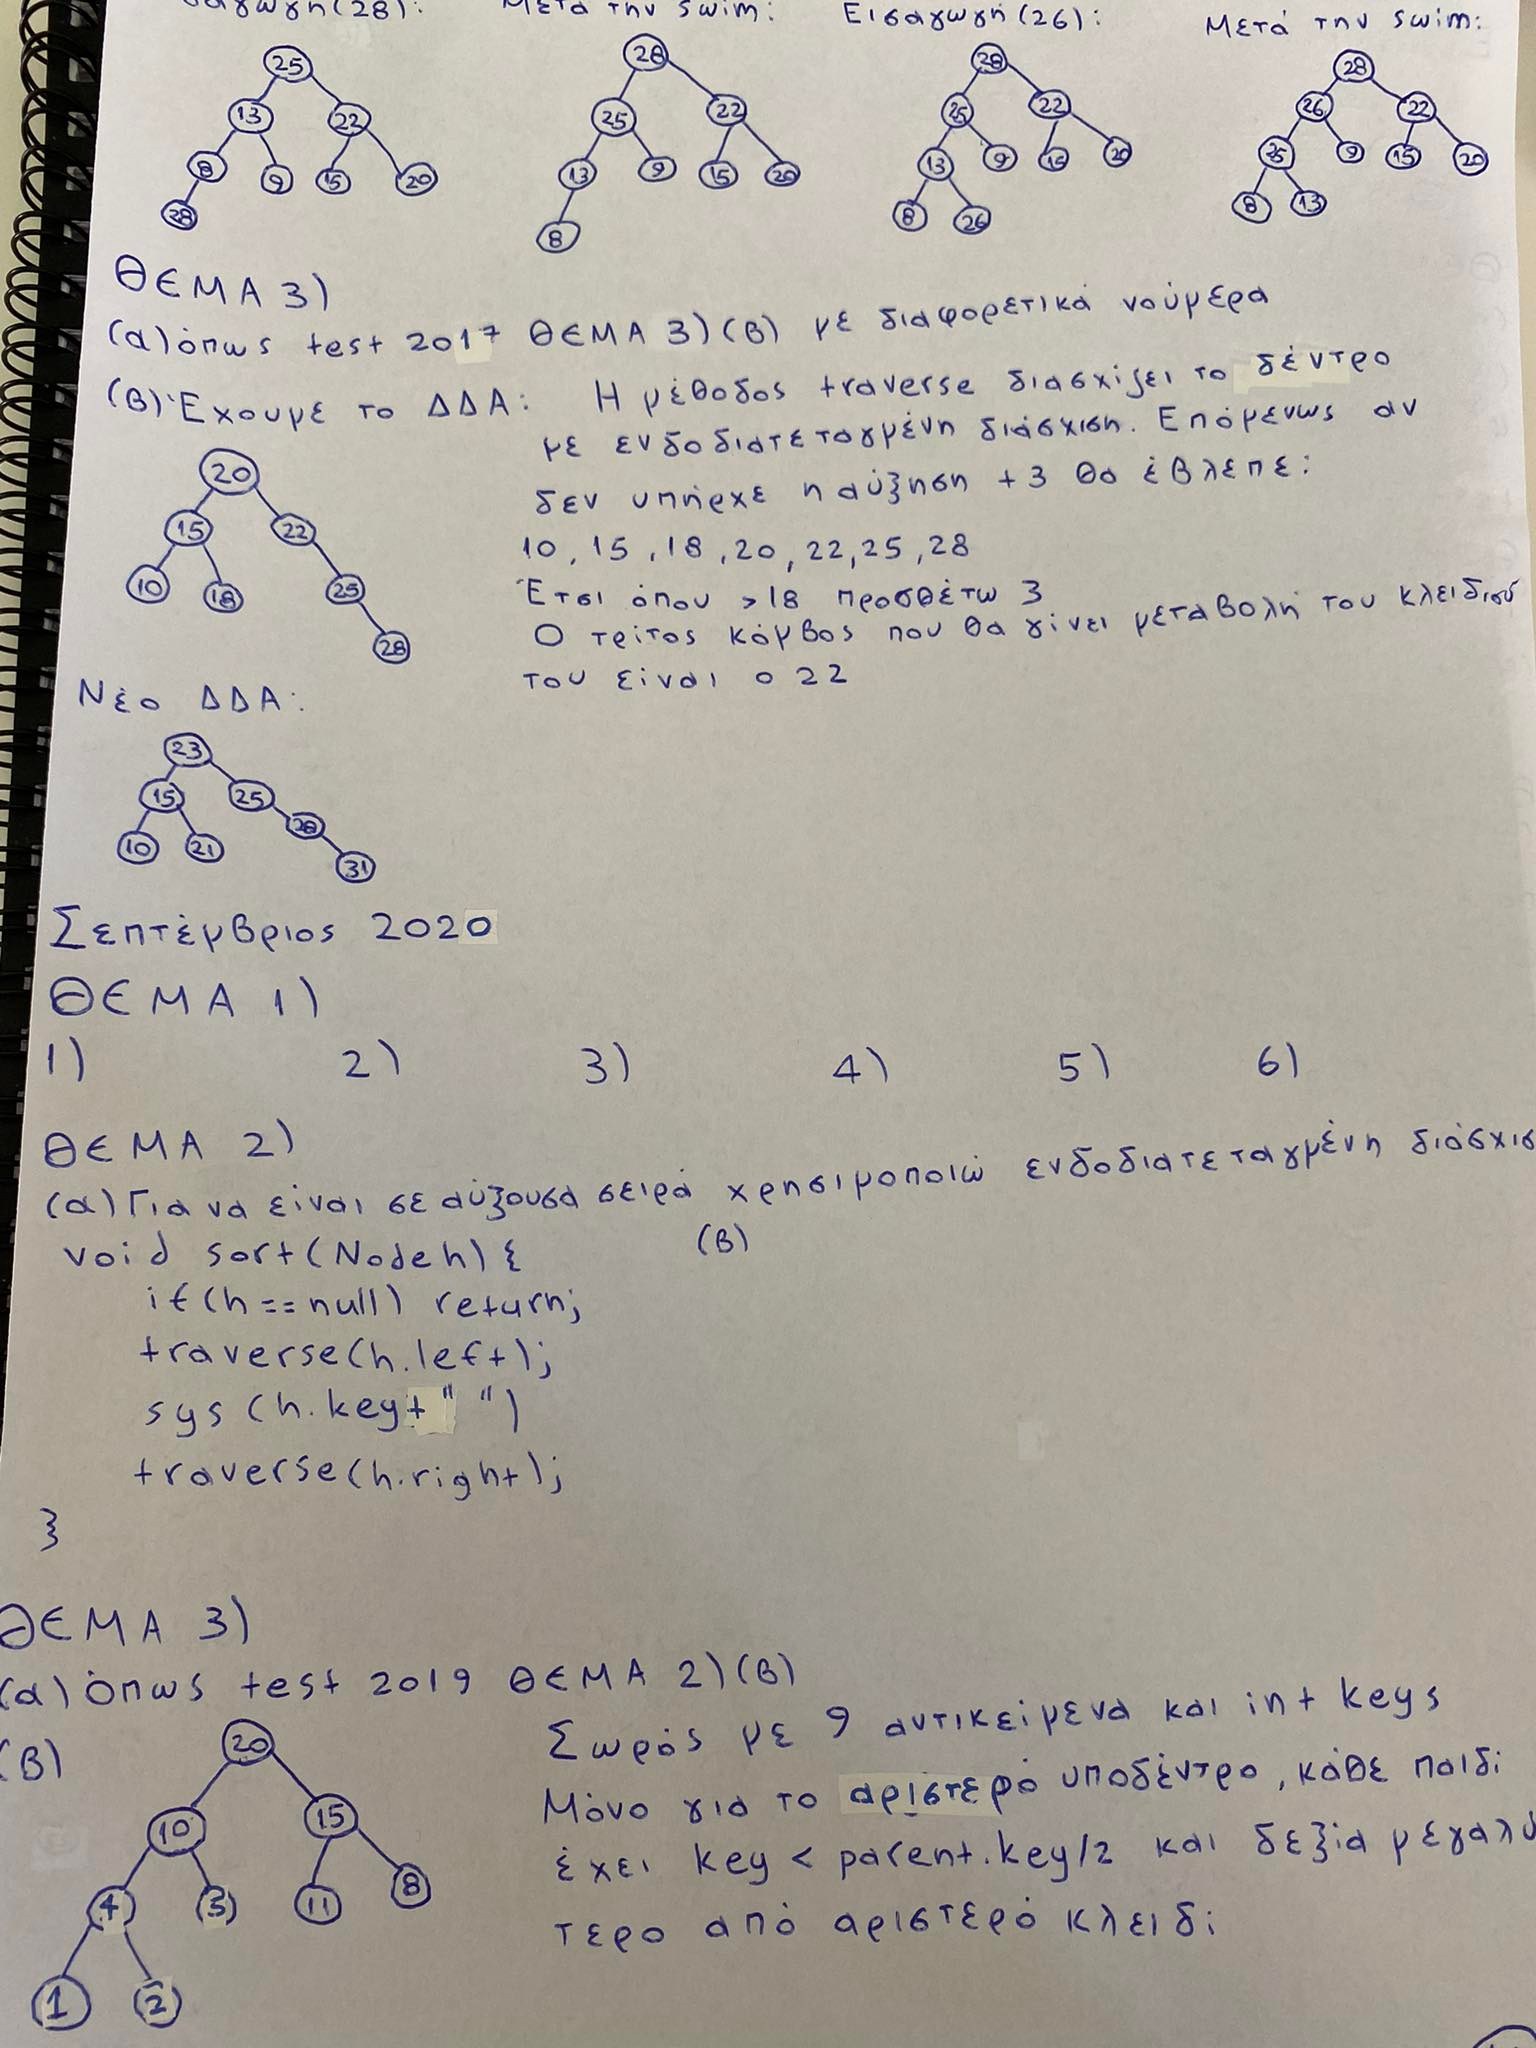 Μετά την swim:
Εισαγωγή (26):
Μετά την swim:
25
13 22
8 9 15 20
28
28
25 22
13 9 15 20
8
28
25 22
13 9 15 20
8 26
28
26 22
25 9 15 20
8 13
ΘΕΜΑ 3)
(α) όπως test 2017 ΘΕΜΑ 3)(β) με διαφορετικά νούμερα
(β) Έχουμε το ΔΔΑ:
20
15 22
10 18 25
28
Η μέθοδος traverse διασχίζει το δέντρο
με ενδοδιατεταγμένη διάσχιση. Επόμενως αν
δεν υπήρχε η αύξηση +3 θα έβλεπε:
10, 15, 18, 20, 22, 25, 28
Έτσι όπου >18 προσθέτω 3
Ο τρίτος κόμβος που θα γίνει μεταβολή του κλειδιού
του είναι ο 22
Νέο ΔΔΑ:
23
15 25
10 21 28
31
Σεπτέμβριος 2020
ΘΕΜΑ 1)
1) 2) 3) 4) 5) 6)
ΘΕΜΑ 2)
(α) Για να είναι σε αύξουσα σειρά χρησιμοποιώ ενδοδιατεταγμένη
void sort(Node h) { (β)
if(h==null) return;
traverse(h.left);
sys (h.key+" ")
traverse(h.right);
}
ΘΕΜΑ 3)
(α) όπως test 2019 ΘΕΜΑ 2)(β)
(β)
20
10 15
4 3 11 8
1 2
Σωρός με 9 αντικείμενα και int keys
Μόνο για το αριστερό υποδέντρο, κάθε παιδί
έχει key < parent.key/2 και δεξιά μεγαλύ
τερο από αριστερό κλειδί